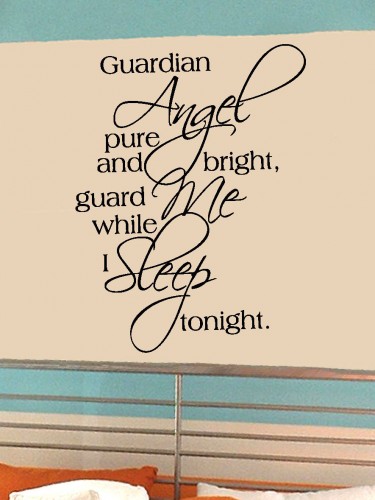 Guardian
Angel
pure
and bright,
guard Me
while
I Sleep
tonight.